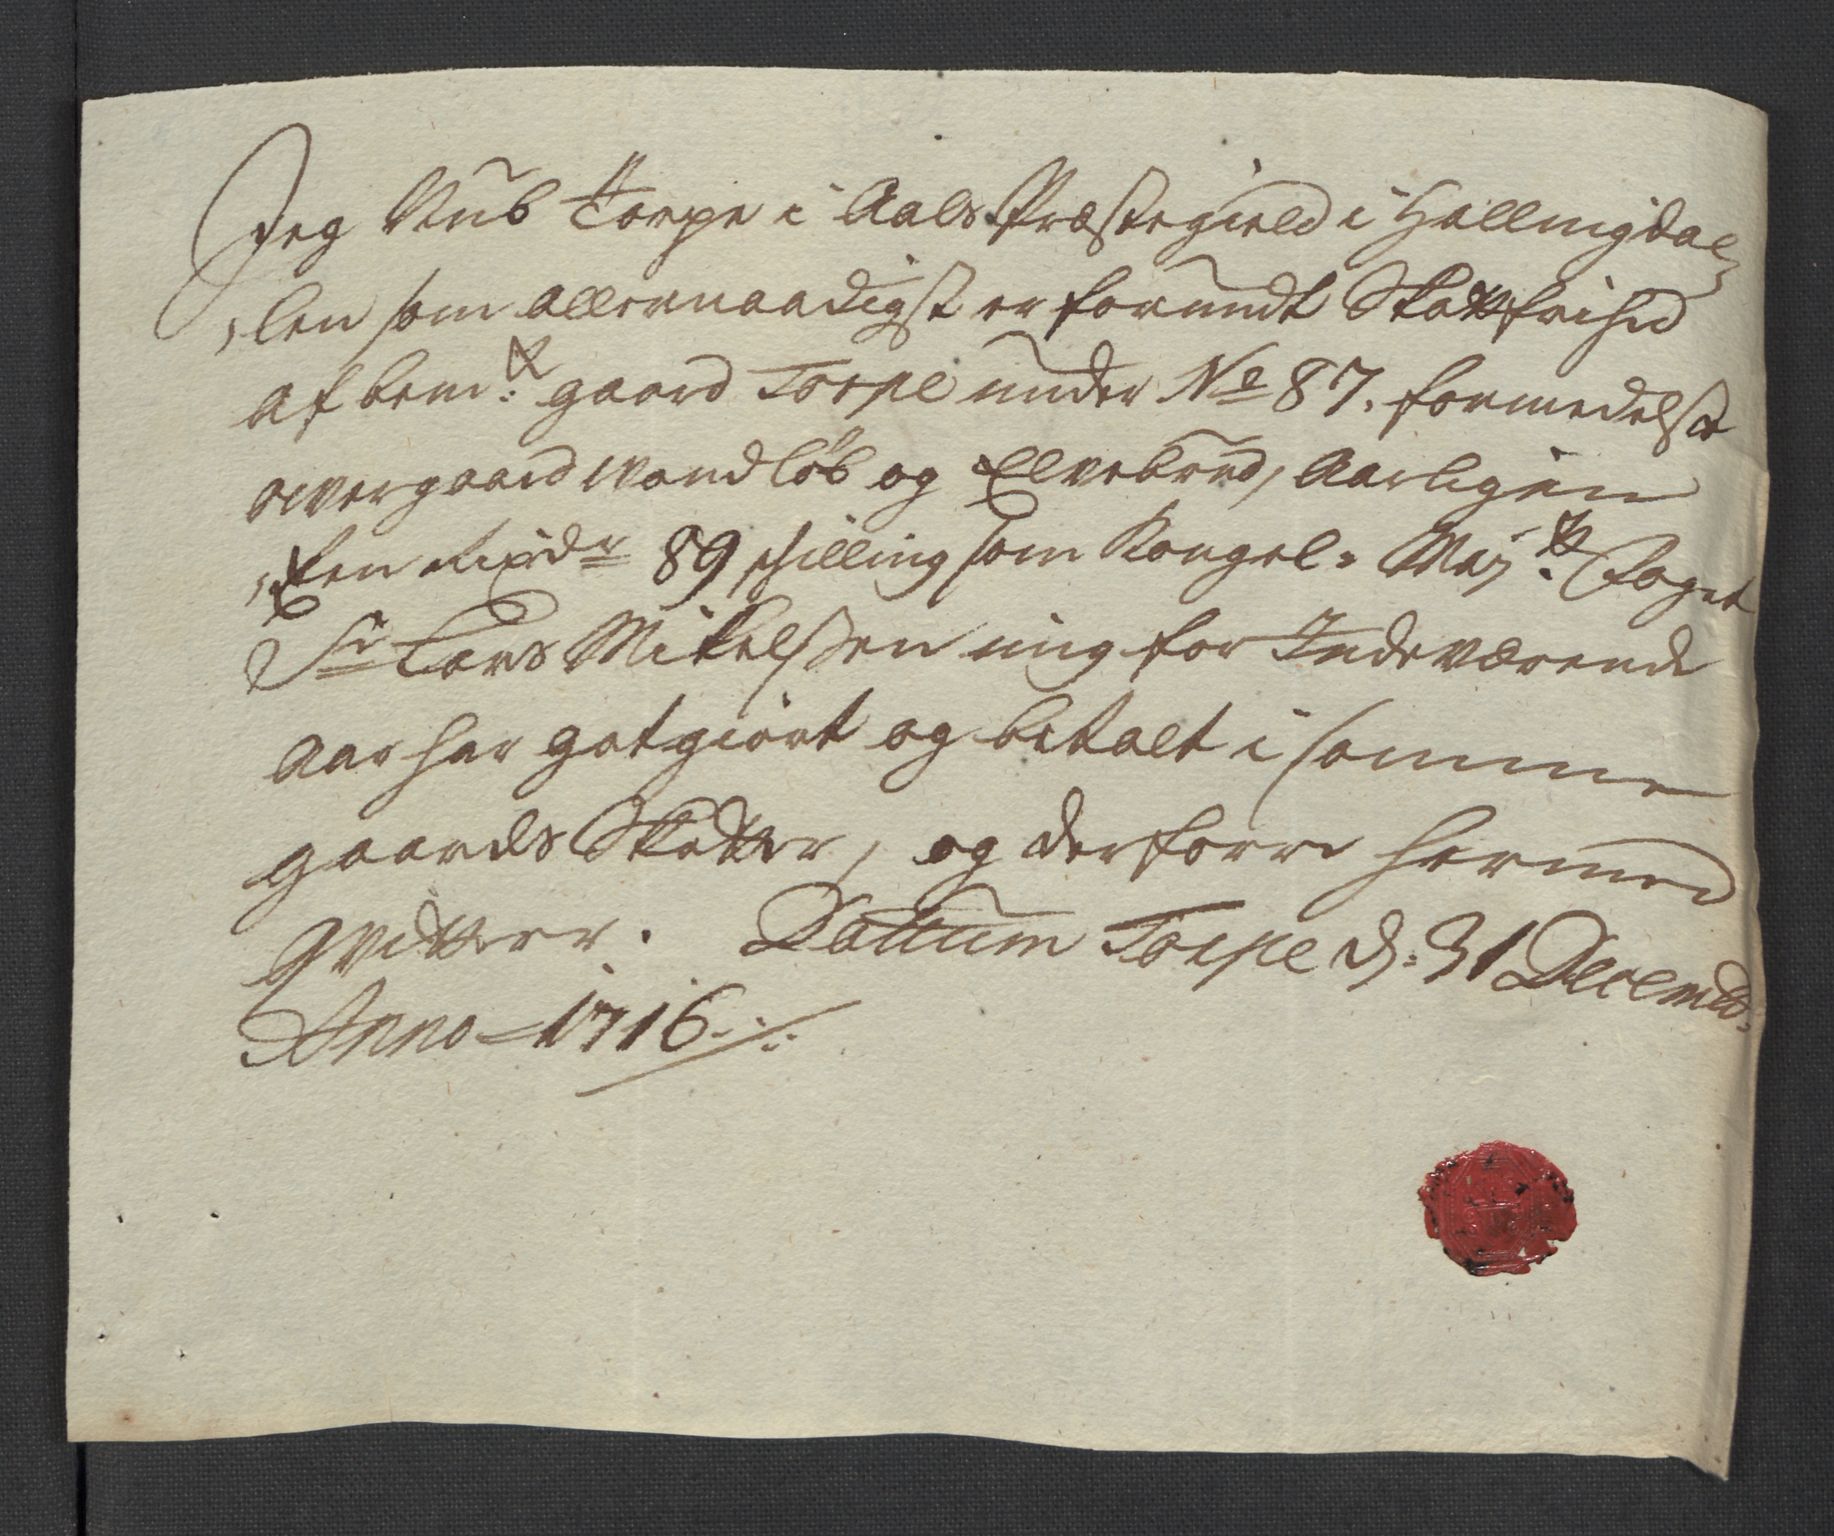 Jeg Knub Torpe i Aals Præstegield i Hallingda-
len som allernaadigst er forundt Skattfrihed
af bemte: gaard Torpe under No 87. formedelst
overgaaed Vandløb og Elvebrud, Aarligen
Een Rixdr 89 skilling som Kongel: Majts: Foget
Sr Lars Mikelsen mig for Indeværende
Aar har gotgiort og betalt i samme
gaards Skatter, og derforre hermed
qvitterer. Dattum Torpe d: 31 Decembr:
Anno 1716